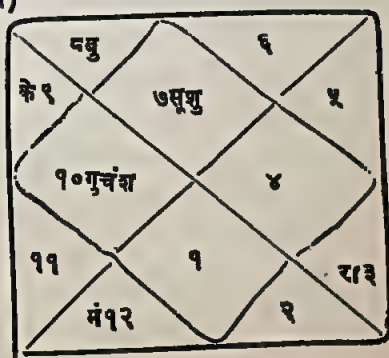 )
८बु ६
के ९ ७सूशु ५
१०गुचंश ४
११ १ रा३
मं१२ २